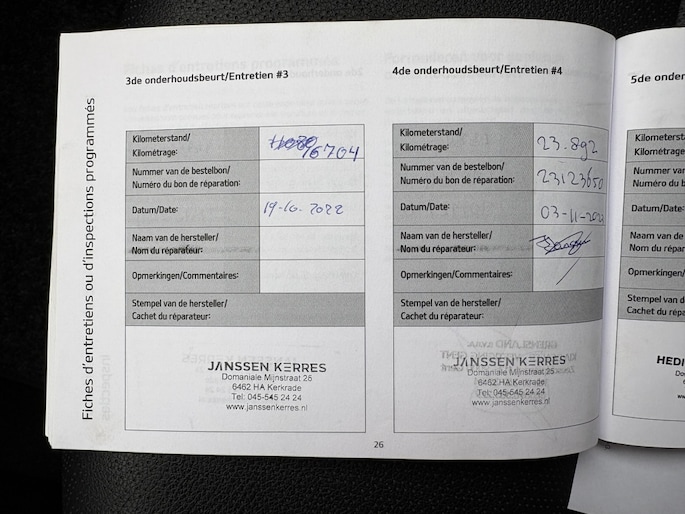 Fiches d'entretiens ou d'inspections programmés
3de onderhoudsbeurt/Entretien #3
Kilometerstand/
Kilométrage:
16704
Nummer van de bestelbon/
Numéro du bon de réparation:
Datum/Date:
19-10-2022
Naam van de hersteller/
Nom du réparateur:
Opmerkingen/Commentaires:
Stempel van de hersteller/
Cachet du réparateur:
JANSSEN KERRES
Domaniale Mijnstraat 25
6462 HA Kerkrade
Tel: 045-545 24 24
www.janssenkerres.nl
4de onderhoudsbeurt/Entretien #4
Kilometerstand/
Kilométrage:
23.892
Nummer van de bestelbon/
Numéro du bon de réparation:
23123650
Datum/Date:
03-11-
Naam van de hersteller/
Nom du réparateur:
Opmerkingen/Commentaires:
Stempel van de hersteller/
Cachet du réparateur:
JANSSEN KERRES
Domaniale Mijnstraat 25
6462 HA Kerkrade
Tel: 045-545 24 24
www.janssenkerres.nl
26
5de onder
Kilometerst
Kilométrage
Nummer var
Numéro du b
Datum/Date:
Naam van de
Nom du répa
Opmerkingen/
Stempel van de
Cachet du répa
HEDI